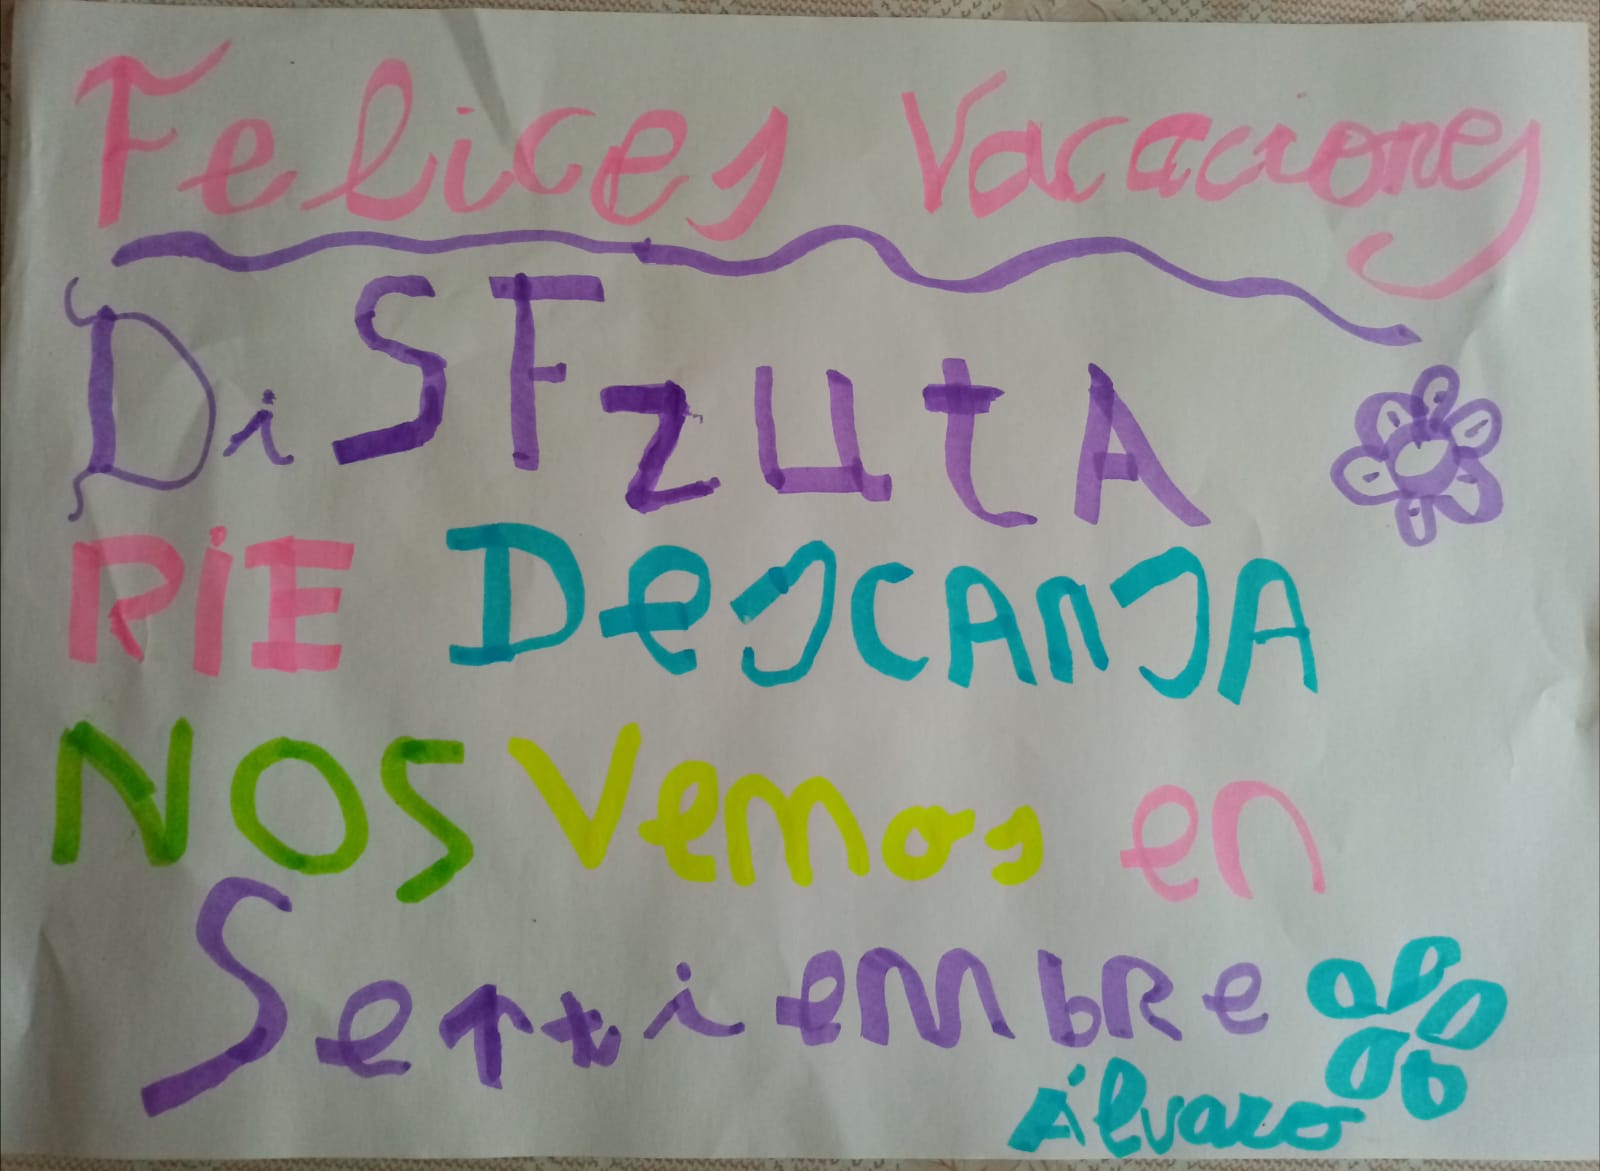 Felices Vacaciones
DiSFrutA
RiE DescAnsA
NOS Vemos en
SeptiembRe
Álvaro